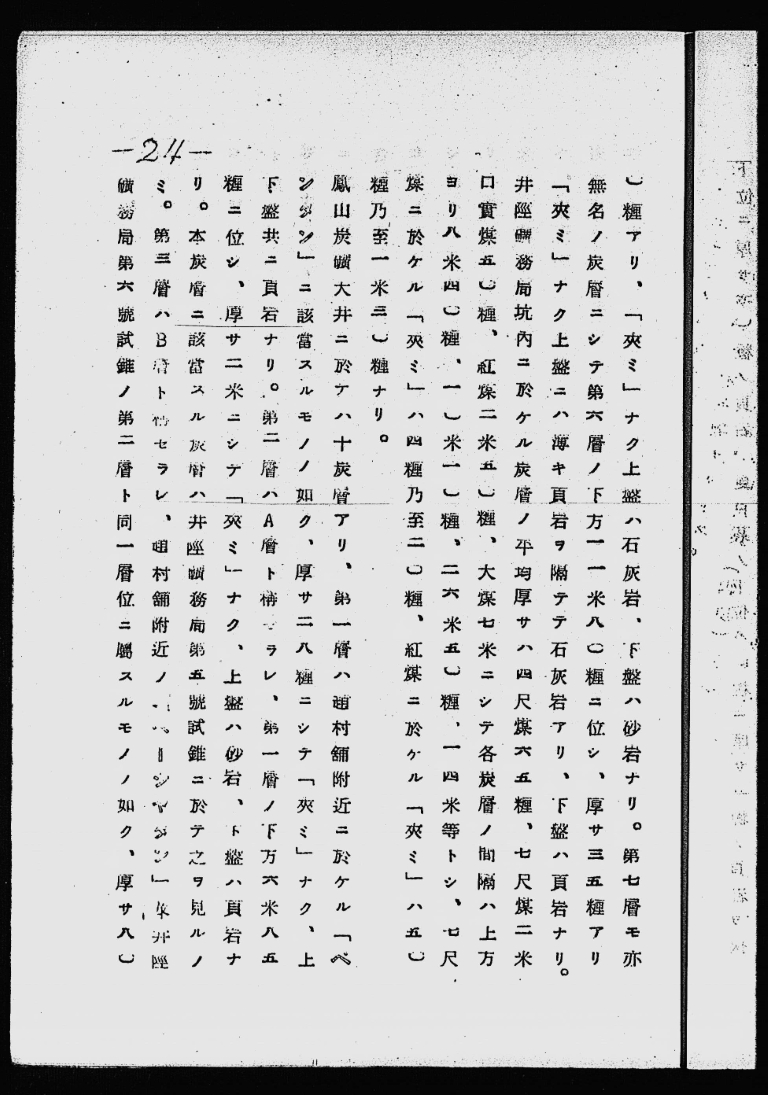 -24-
〇糎アリ、「夾ミ」ナク上盤ハ石灰岩、下盤ハ砂岩ナリ。第七層モ亦
無名ノ炭層ニシテ第六層ノ下方一一米八〇糎ニ位シ、厚サ三五糎アリ
「夾ミ」ナク上盤ニハ薄キ頁岩ヲ隔テテ石灰岩アリ、下盤ハ頁岩ナリ。
井陘礦務局坑内ニ於ケル炭層ノ平均厚サハ四尺煤六五糎、七尺煤二米
口實煤五〇糎、紅煤二米五〇糎、大煤七米ニシテ各炭層ノ間隔ハ上方
ヨリ八米四〇糎、一〇米一〇糎、二六米五〇糎、一四米等トシ、七尺
煤ニ於ケル「夾ミ」ハ四糎乃至二〇糎、紅煤ニ於ケル「夾ミ」ハ五〇
糎乃至一米三〇糎ナリ。
鳳山炭礦大井ニ於テハ十炭層アリ、第一層ハ趙村舖附近ニ於ケル「ペ
ンタン」ニ該當スルモノノ如ク、厚サ二八糎ニシテ「夾ミ」ナク、上
下盤共ニ頁岩ナリ。第二層ハA層ト稱セラレ、第一層ノ下方六米八五
糎ニ位シ、厚サ二米ニシテ「夾ミ」ナク、上盤ハ砂岩、下盤ハ頁岩ナ
リ。本炭層ニ該當スル炭層ハ井陘礦務局第五號試錐ニ於テ之ヲ見ルノ
ミ。第三層ハB層ト稱セラレ、趙村舖附近ノ「」井陘
礦務局第六號試錐ノ第二層ト同一層位ニ屬スルモノノ如ク、厚サ八〇